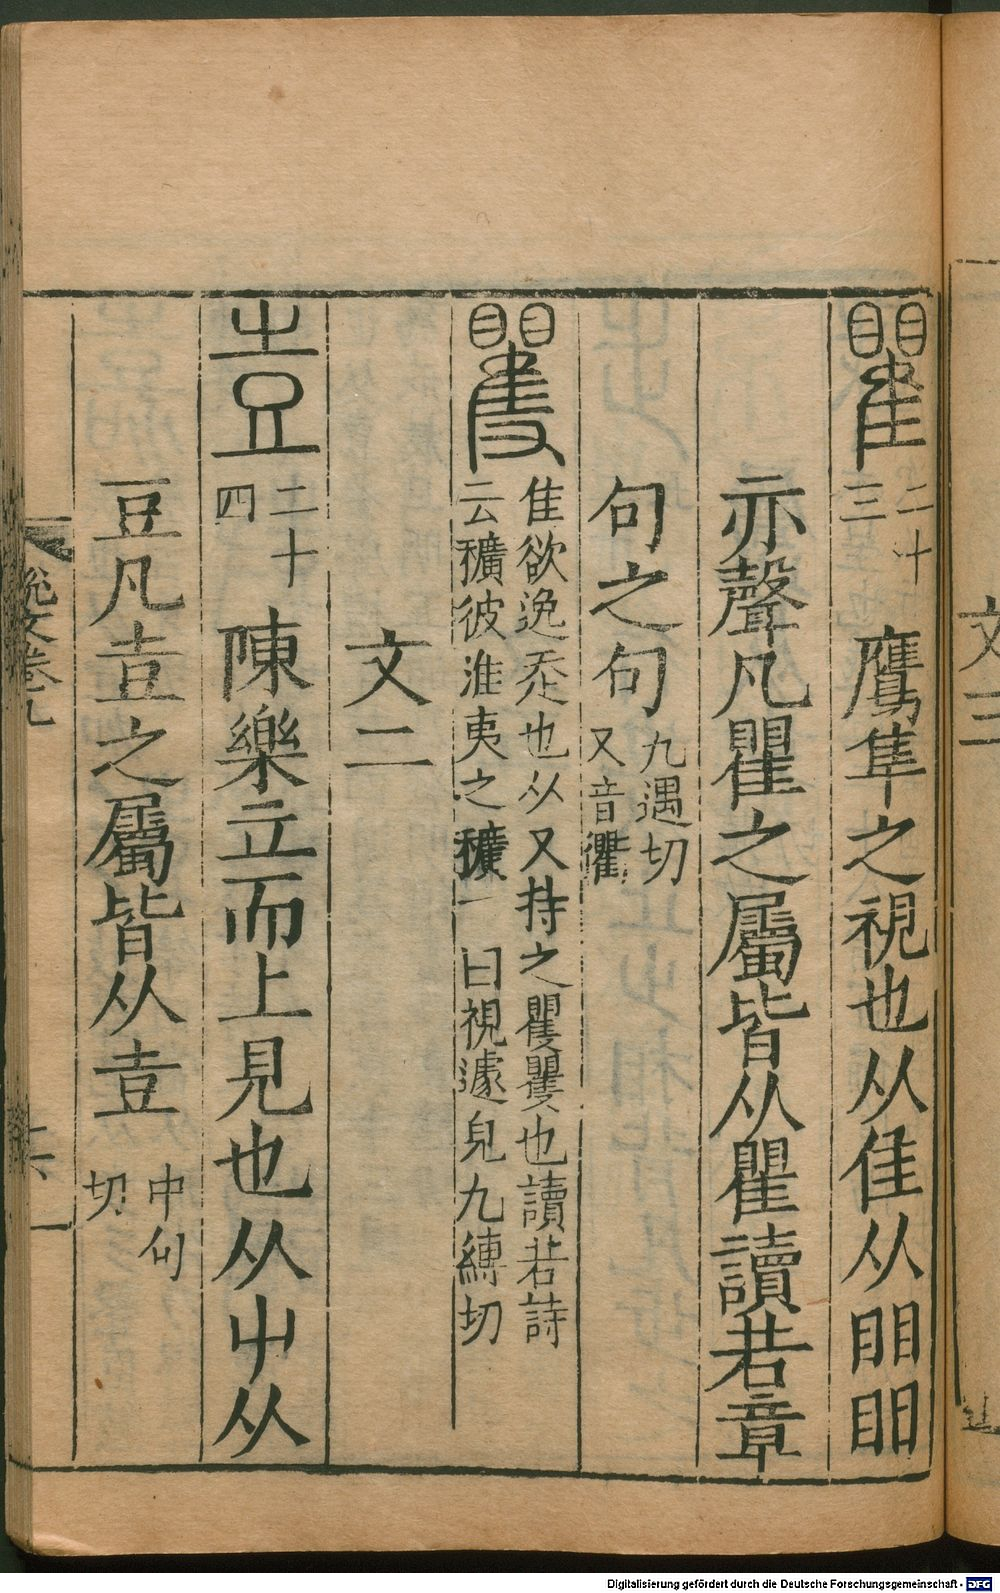 瞿二十三鷹隼之視也从隹从䀠䀠
亦聲凡瞿之屬皆从瞿讀若章
句之句九遇切又音衢
矍隹欲逸走也从又持之矍矍也讀若詩
云穬彼淮夷之穬一曰視遽皃九縛切
文二
壴二十四陳樂立而上見也从屮从
豆凡壴之屬皆从壴中句切
說文卷九
文三
Digitalisierung gefördert durch die Deutsche Forschungsgemeinschaft - DFG